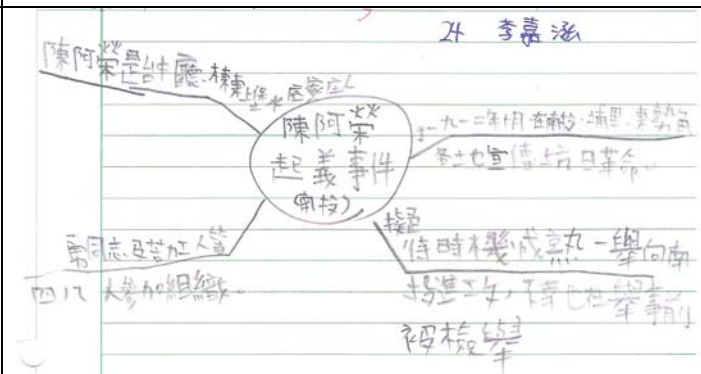 24 李嘉涵
陳阿榮是台中廳棟東上堡水底寮庄人
陳阿榮
起義事件
(南投)
於一九一二年十月在南投、埔里、東勢角
各土也宣傳抗日革命。
募同志及苦力工人等
四八人參加組織。
擬
待時機成熟一舉向南
投進攻,不幸也在舉事前
被檢舉